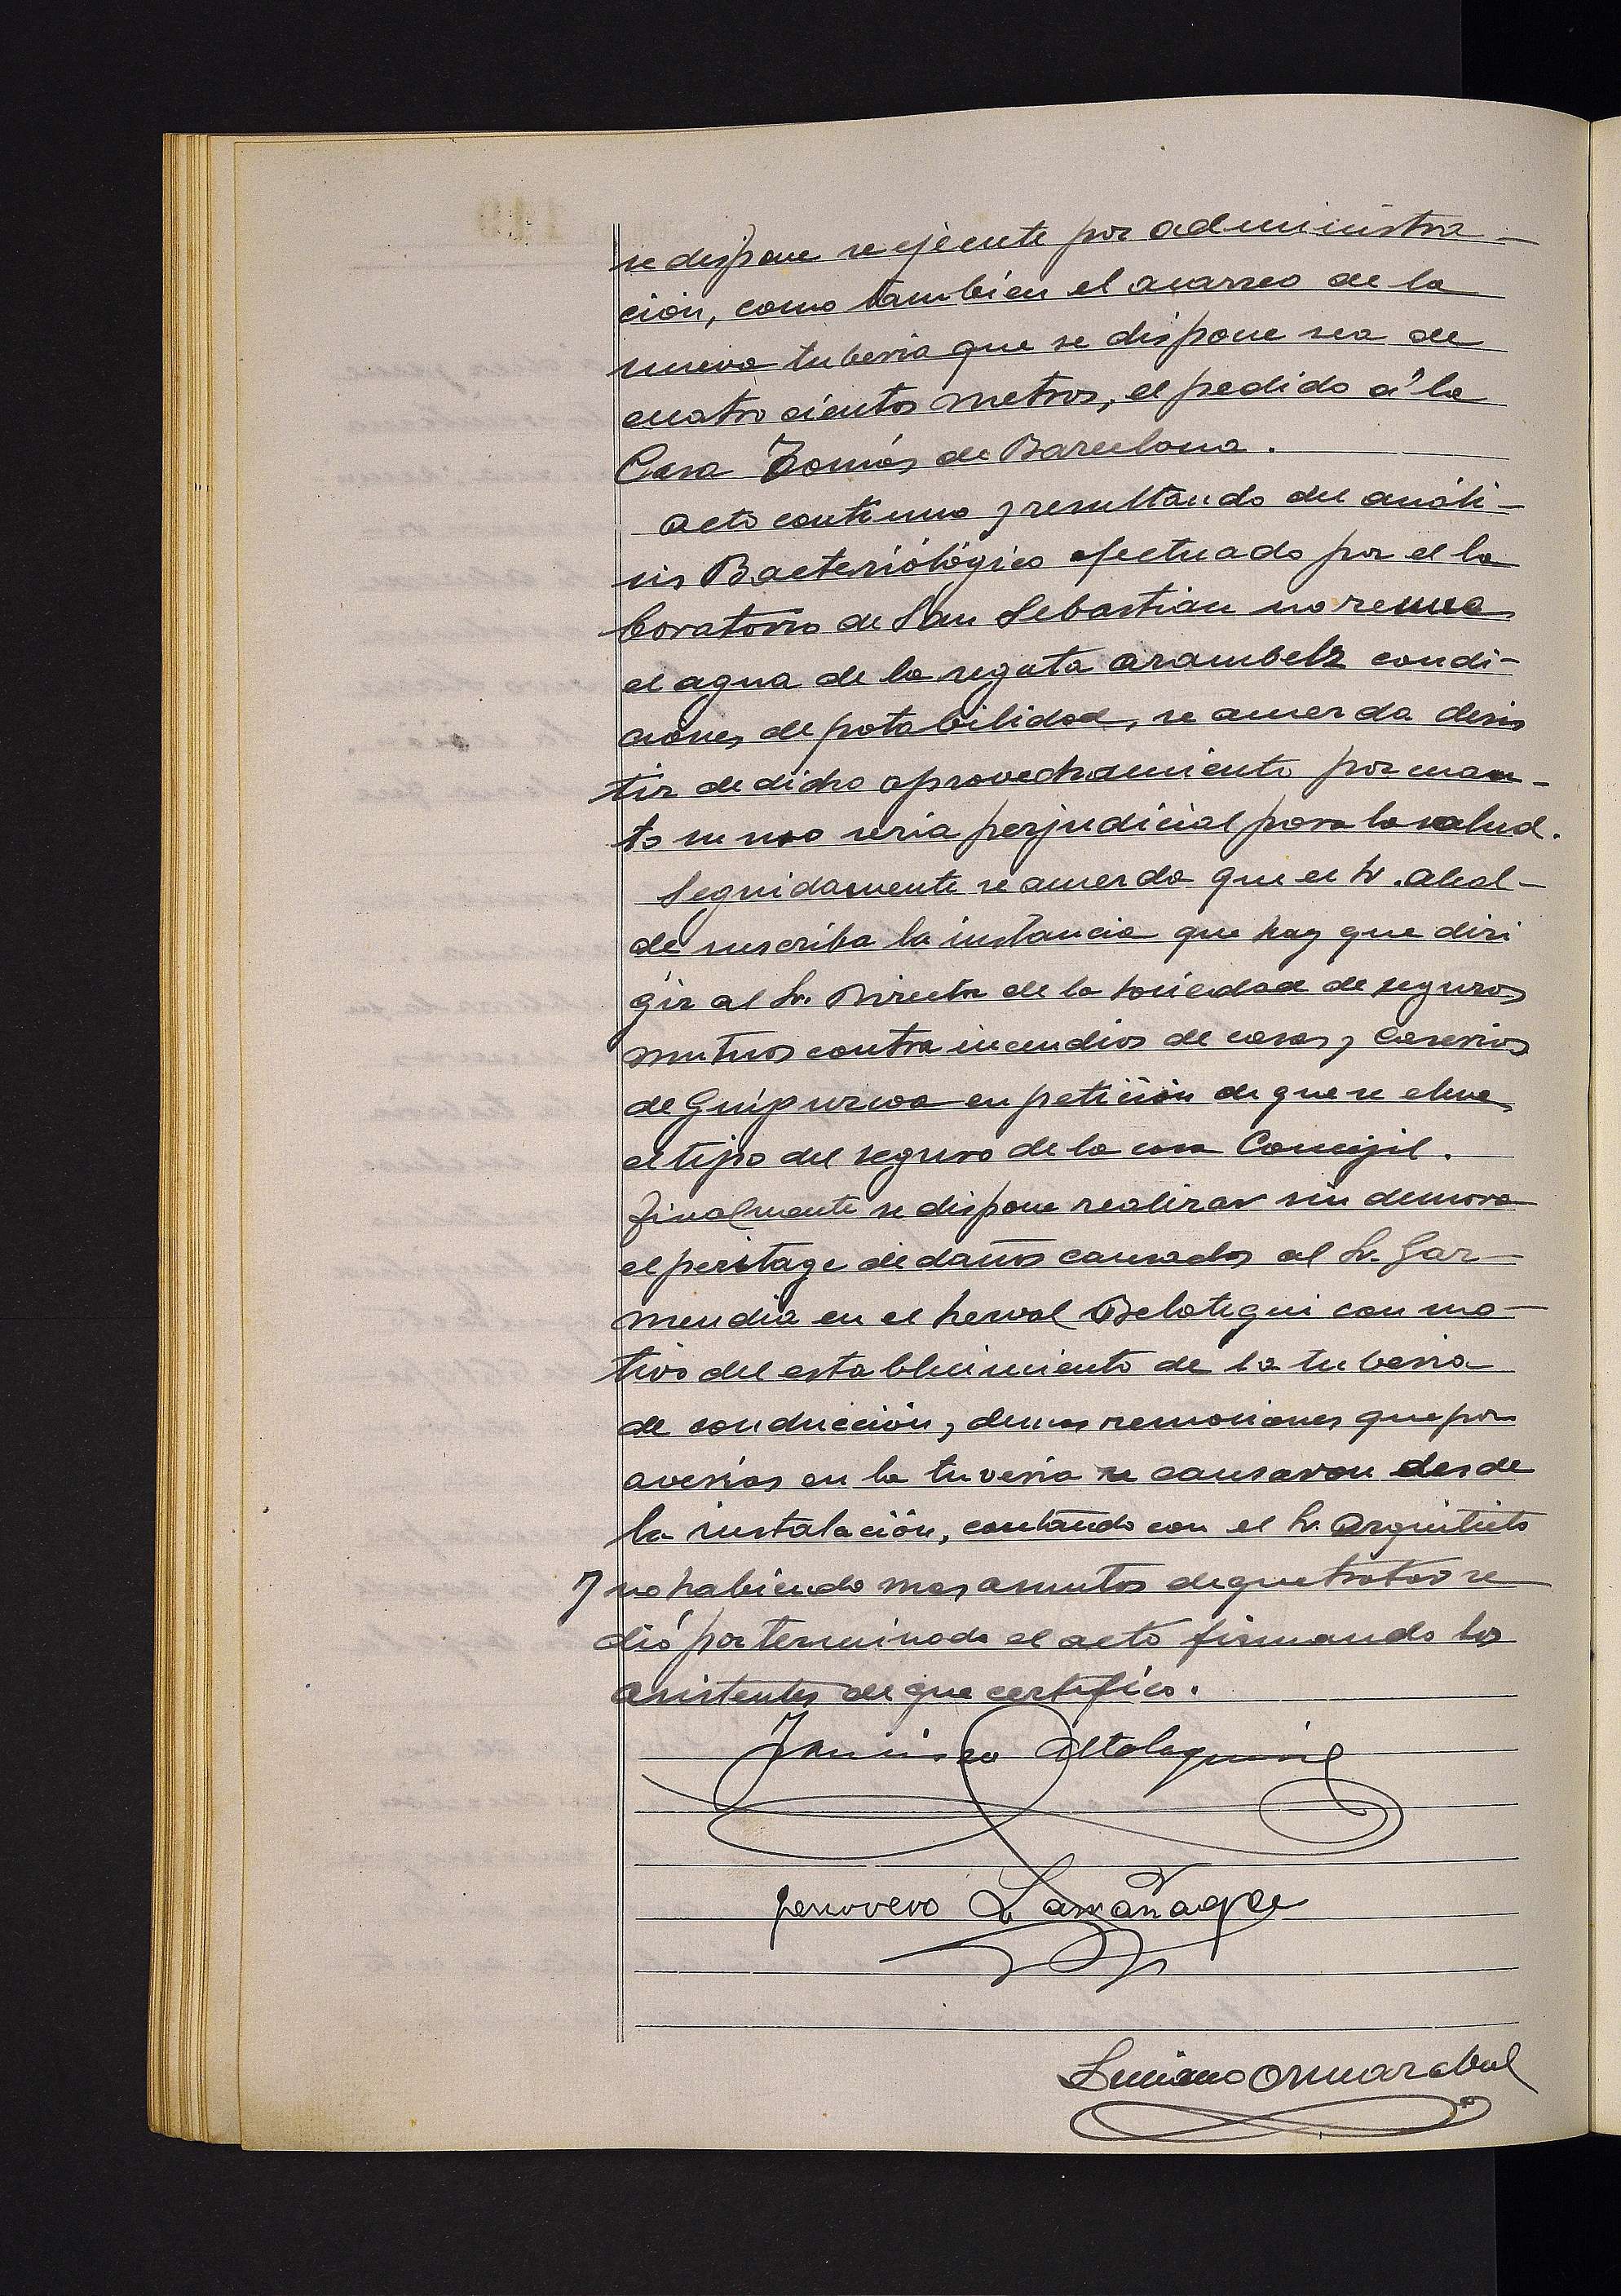 se dispone se ejecute por administra-
ción, como tambien el acarreo de la
nueva tuberia que se dispone sea de
cuatro cientos metros, el pedido á la
Casa Tomás de Barcelona.
Acto continuo y resultando del análi-
sis Bacteriológico efectuado por el la
boratorio de San Sebastian no reune
el agua de la regata Arambelz condi-
ciones de potabilidad, se acuerda desis
tir de dicho aprovechamiento por cuan-
to su uso seria perjudicial para la salud.
Seguidamente se acuerda que el Sr. Alcal-
de suscriba la instancia que hay que diri
gir al Sr. Director de la Sociedad de seguros
mutuos contra incendios de casas y Caserios
de Guipuzcoa en petición de que se eleve
el tipo del seguro de la casa Concejil.
Finalmente se dispone realizar sin demora
el peritage de daños causados al Sr. Gar-
mendia en el herval Belotegui con mo-
tivo del establecimiento de la tuberia
de conducción, y demas remociones que por
averias en la tuveria se causaron desde
la instalación, contando con el Sr. Arquitecto
y no habiendo mas asuntos de que tratar se
dió por terminado el acto firmando los
asistentes de que certifico.
Francisco
Larrañaga
Luciano Ormazabal